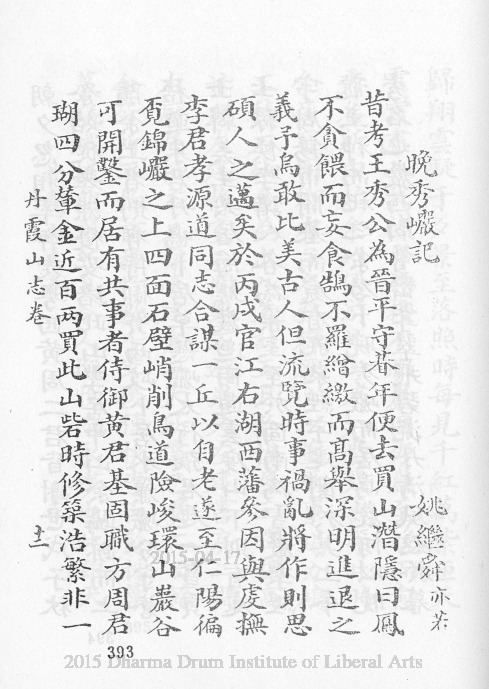 晚秀巖記　姚繼舜亦若
昔考王秀公為晉平守朞年便去買山潛隱曰鳳
不貪餵而妄食鵠不羅繒繳而髙舉深明進退之
義予烏敢比美古人但流覽時事禍亂將作則思
碩人之薖矣於丙戌官江右湖西藩參因與虔撫
李君孝源道同志合謀一丘以自老遂至仁陽徧
覔錦巖之上四面石壁峭削鳥道險峻環山巖谷
可開鑿而居有共事者侍御黄君基固職方周君
瑚四分輦金近百两買此山砦時修築浩繁非一
丹霞山志卷　十一
393
2015-04-17
2015 Dharma Drum Institute of Liberal Arts